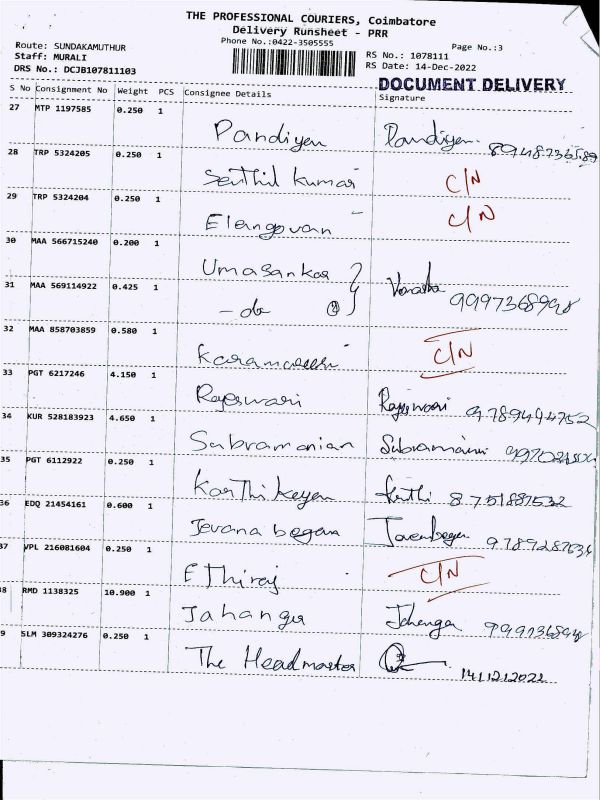 THE PROFESSIONAL COURIERS, Coimbatore
Delivery Runsheet - PRR
Phone No.:0422-3505555
Page No.:3
Route: SUNDAKAMUTHUR
Staff: MURALI
DRS No.: DCJB107811103
RS No.: 1078111
RS Date: 14-Dec-2022
DOCUMENT DELIVERY
S No Consignment No Weight PCS Consignee Details Signature
27 MTP 1197585 0.250 1
Pandiyen Pandiyen
28 TRP 5324205 0.250 1
Senthil kumar C/N
29 TRP 5324204 0.250 1
Elangovan C/N
30 MAA 566715240 0.200 1
Umasankar
31 MAA 569114922 0.425 1
- do 9997368998
32 MAA 858703859 0.580 1
C/N
33 PGT 6217246 4.150 1
Rajeswari Rajeswari 9789494752
34 KUR 528183923 4.650 1
Subramanian
35 PGT 6112922 0.250 1
Karthikeyen 8751887532
36 EDQ 21454161 0.600 1
Jevana begam
37 VPL 216081604 0.250 1
EThiraj C/N
38 RMD 1138325 10.900 1
Jahangir
39 SLM 309324276 0.250 1
The Headmaster 14/12/2022